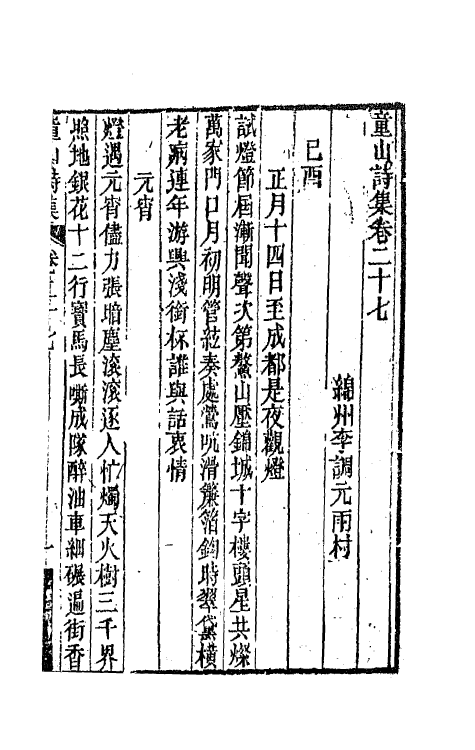 童山詩集卷二十七
綿州李調元雨村
己酉
正月十四日至成都是夜觀燈
試燈節屆漸聞聲次第鰲山壓錦城十字樓頭星共燦
萬家門口月初明管絃奏處鶯吭滑簾箔鉤時翠黛橫
老病連年游興淺銜杯誰與話衷情
元宵
燈遇元宵儘力張暗塵滾滾逐人忙燭天火樹三千界
照地銀花十二行寶馬長嘶成隊醉油車細碾遍街香
童山詩集 卷二十七 一